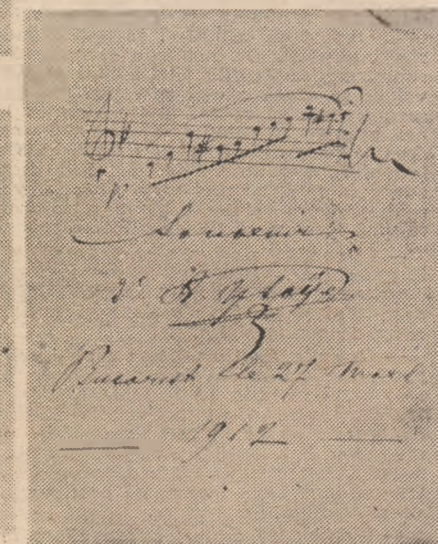 p
Souvenir
d' E. Ysaÿe
Bucarest le 27 Mars
1912